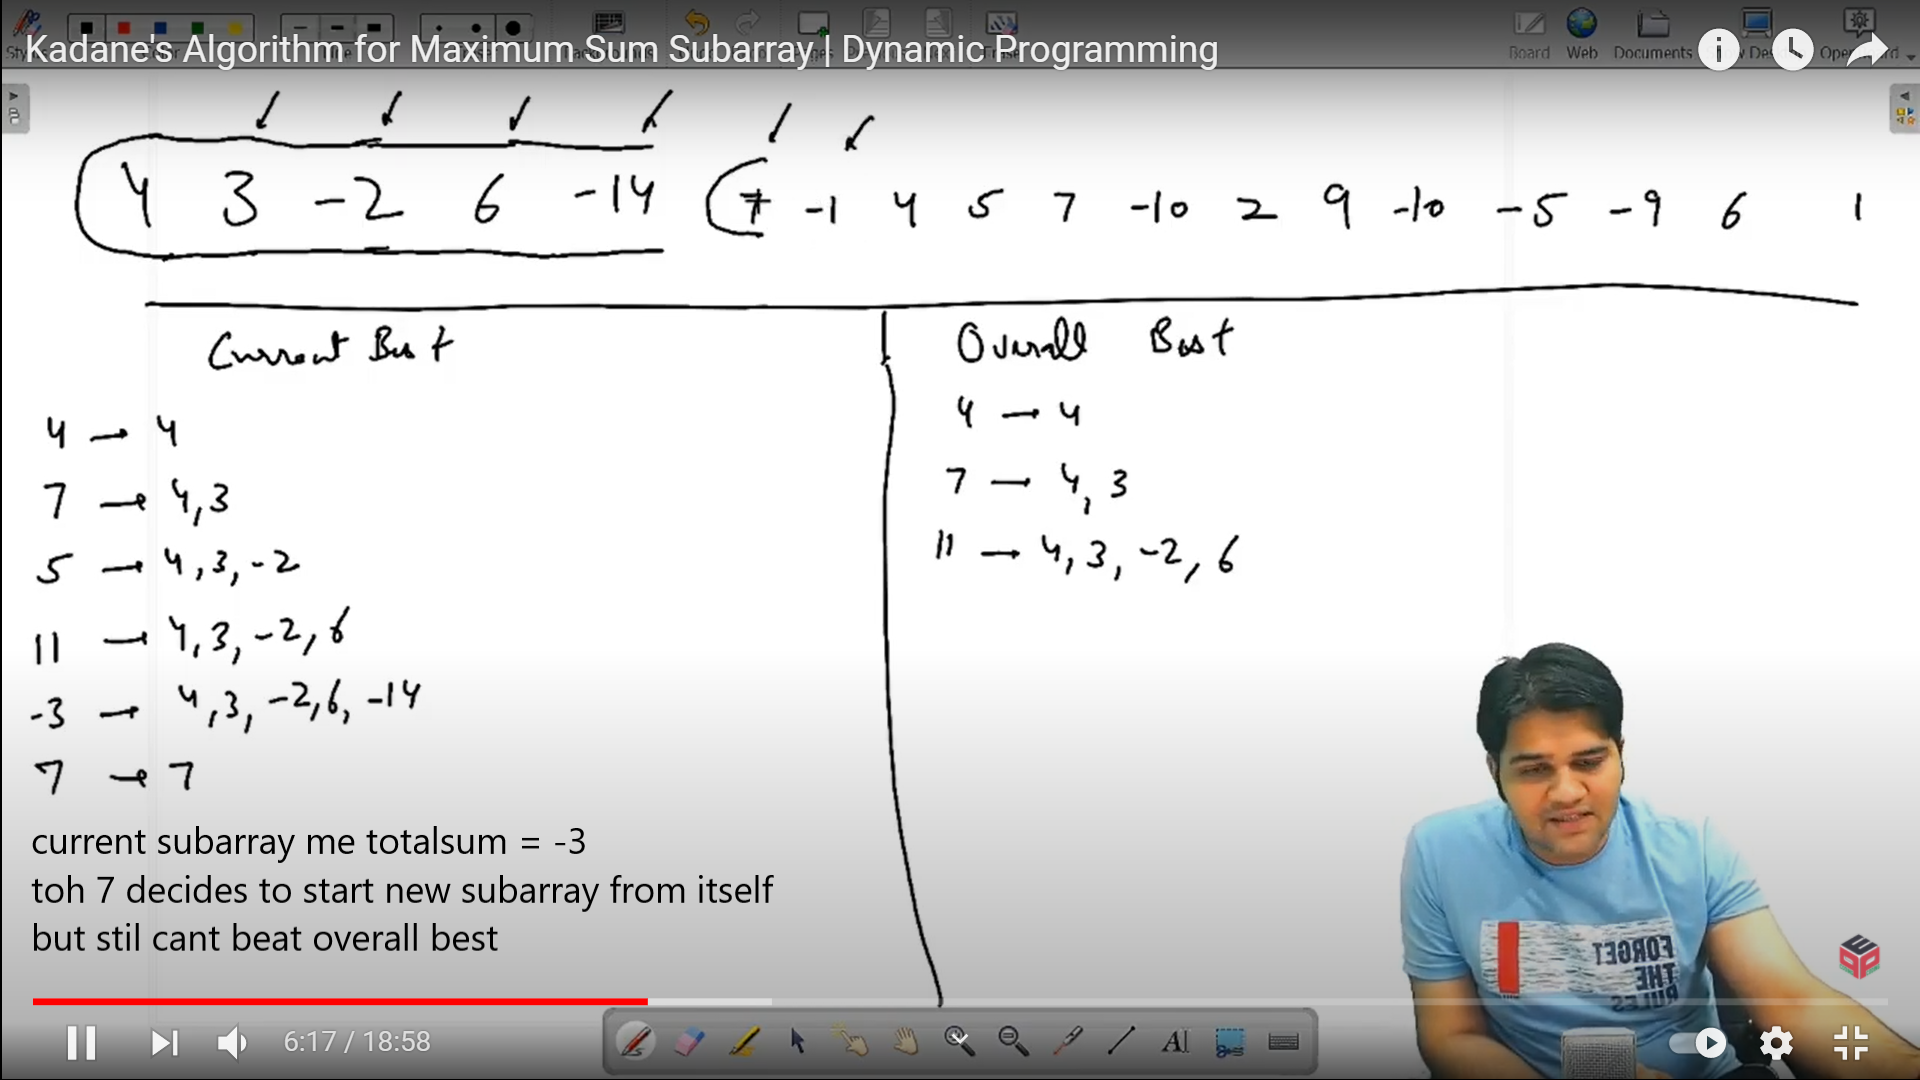 Kadane's Algorithm for Maximum Sum Subarray | Dynamic Programming
Board Web Documents
4 3 -2 6 -14 7 -1 4 5 7 -10 2 9 -10 -5 -9 6 1
Current Best
Overall Best
4 → 4
7 → 4,3
5 → 4,3,-2
11 → 4,3,-2,6
-3 → 4,3,-2,6,-14
7 → 7
4 → 4
7 → 4,3
11 → 4,3,-2,6
current subarray me totalsum = -3
toh 7 decides to start new subarray from itself
but stil cant beat overall best
FORGET
THE
RULES
6:17 / 18:58